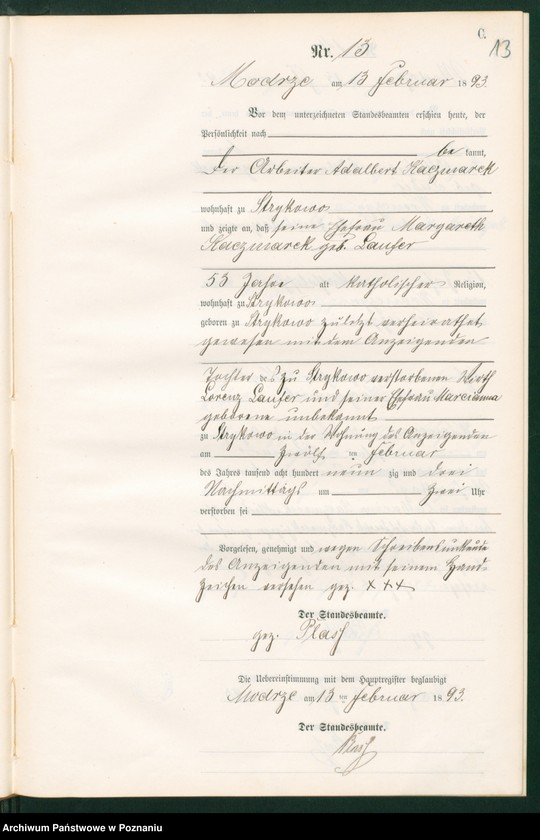 C.
13
Nr. 13
Modrze am 13 Februar 1893.
Vor dem unterzeichneten Standesbeamten erschien heute, der
Persönlichkeit nach
be kannt,
Der Arbeiter Adalbert Kaczmarek
wohnhaft zu Strykowo
und zeigte an, daß seine Ehefrau Margareth
Kaczmarek geb. Laufer
53 Jahre alt katholischer Religion,
wohnhaft zu Strykowo
geboren zu Strykowo zuletzt verheirathet
gewesen mit dem Anzeigenden
Tochter des zu Strykowo verstorbenen Wirth
Lorenz Laufer und seiner Ehefrau Marcianna
geborene unbekannt
zu Strykowo in der Wohnung des Anzeigenden
am zwölf ten Februar
des Jahres tausend acht hundert neun zig und drei
Nachmittags um zwei Uhr
verstorben sei
Vorgelesen, genehmigt und wegen Schreibensunkunde
des Anzeigenden mit seinem Hand-
zeichen versehen gez. xxx
Der Standesbeamte.
gez. Plasch
Die Uebereinstimmung mit dem Hauptregister beglaubigt
Modrze am 13 ten Februar 1893.
Der Standesbeamte.
Plasch
Archiwum Państwowe w Poznaniu